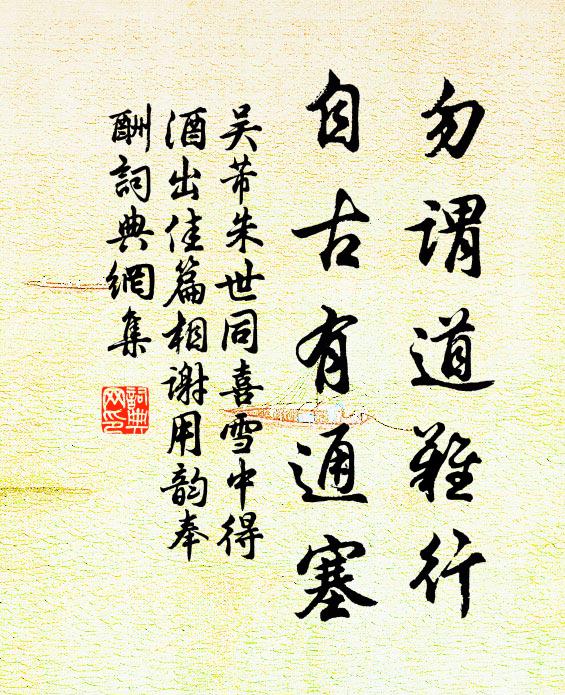 勿谓道難行
自古有通塞
吴芾朱世同喜雪中得
酒出佳篇相谢用韵奉
酬詞典網集
詞典网印